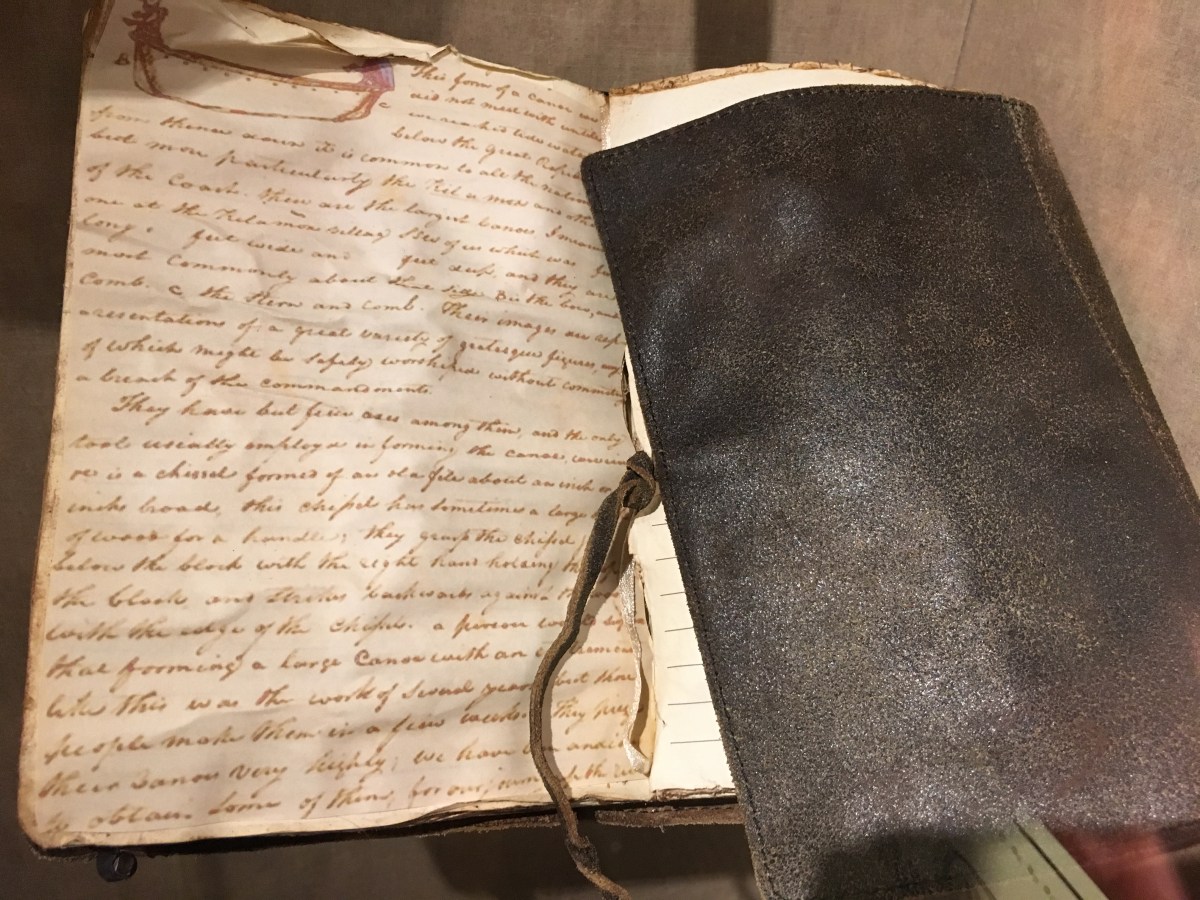 B
This form of a canoe we
did not meet with untill
we reached tide wa
C
below the great Rapids
from thence down it is common to all the nati
but more particularly the Kil a mox and othe
of the Coast. these are the largest canoes I mea
one at the Kilamox village S S W of us which was feet
long, feet wide and feet deep, and they are
most commonly about B is the bow, and
comb. C, the stern and comb. Their images are rep
resentations of a great variety of grotesque figures, any
of which might be safely worshiped without committ
a breach of the commandments.
They have but few axes among them, and the only
tool usially employd in forming the canoe, carveing
&c is a chissel formed of an old file about an inch or
inch broad, this chissel has sometimes a large
of wood for a handle; they grasp the chissel
below the block with the right hand holding the
the block, and strikes backwards against the
with the edge of the chissel. a person would s
that forming a large Canoe with an
like this was the work of several years but these
people make them in a few weeks. They prize
their canoes very highly; we have been anxi
to obtain some of them, for our, num of the